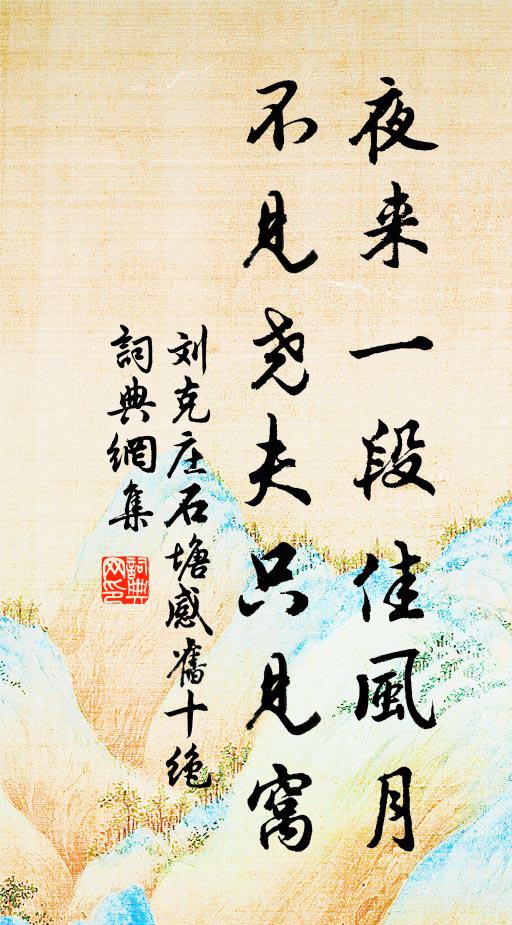 夜来一段佳風月
不見尧夫只見窩
刘克庄石塘感舊十绝
詞典網集
詞典网印